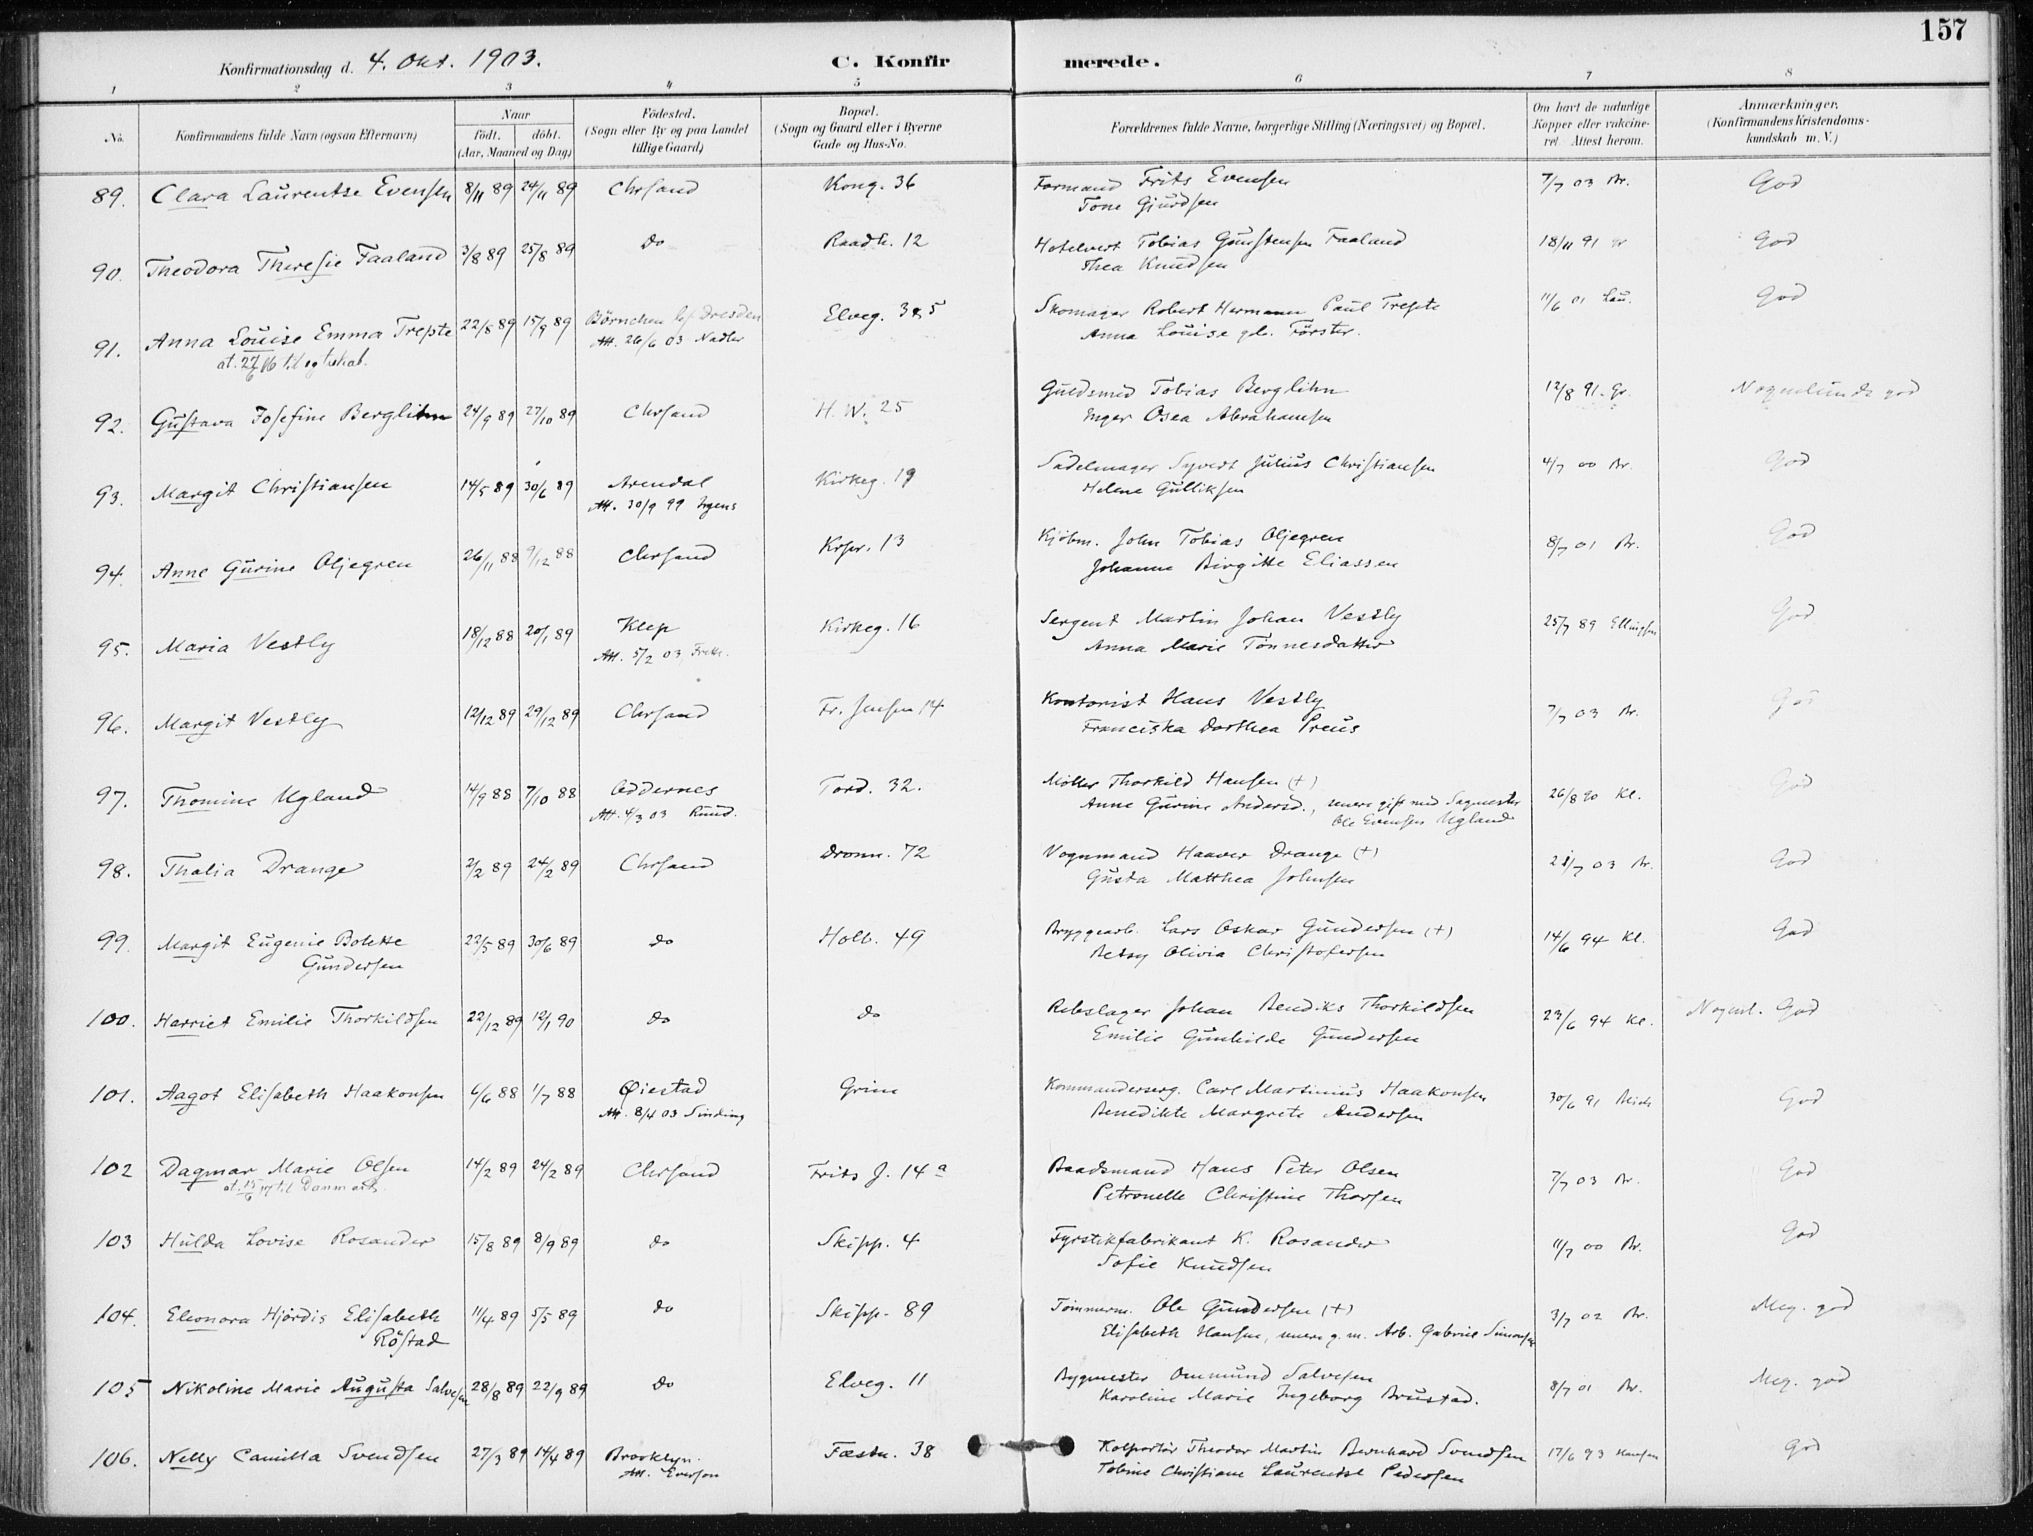 157
Konfirmationsdag d. 4. Okt. 1903. C. Konfirmerede.
1 2 3 4 5 6 7 8
No. Konfirmandens fulde Navn (ogsaa Efternavn) Naar födt. döbt. (Aar, Maaned og Dag) Födested. (Sogn eller By og paa Landet tillige Gaard) Bopæl. (Sogn og Gaard eller i Byerne Gade og Hus-No. Forældrenes fulde Navne, borgerlige Stilling (Næringsvei) og Bopæl. Om havt de naturlige Kopper eller vaccineret. Attest herom. Anmærkninger, (Konfirmandens Kristendomskundskab m. V.)
89. Clara Laurentse Evensen 8/11 89 24/11 89 Chrsand Kong. 36 Formand Frits Evensen 7/7 03 Br. God
Tone Gjurdsen
90. Theodora Theresie Faaland 3/8 89 25/8 89 do Raadh. 12 Hotelvert Tobias Faaland 18/11 91 God
Thea Knudsen
91. Anna Louise Emma Trepte 22/8 89 15/9 89 Börnchen bei Dresden Elveg. 35 Skomager Robert Hermann Paul Trepte 11/6 01 Lau. God
Att. 26/6 03 Nadler Anna Louise gb. Förster.
92. Gustava Josefine Berglihn 24/9 89 27/10 89 Chrsand H. W. 25 Guldsmed Tobias Berglihn 12/8 91. Gr. Nogenlunde god
Inger Osea Abrahamsen
93. Margit Christiansen 14/5 89 30/6 89 Arendal Kirkeg. 19 Sadelmager Syvert Julius Christiansen 4/7 00 Br. God
Att. 30/9 99 Irgens Helene Gulliksen
94. Anne Gurine Oljegren 26/11 88 9/12 88 Chrsand Krpr. 13 Kjöbm. John Tobias Oljegren 8/7 01 Br. God
Johanne Birgitte Eliassen
95. Maria Vestly 18/12 88 20/1 89 Klep Kirkeg. 16 Sergent Martin Johan Vestly 25/7 89 Ellingsen God
Att. 5/2 03 Anna Marie Tönnesdatter
96. Margit Vestly 12/12 89 29/12 89 Chrsand Fr. Jensen 14 Kontorist Hans Vestly 7/7 03 Br. God
Franciska Dorthea Preus
97. Thomine Ugland 14/9 88 7/10 88 Oddernes Tord. 32. Möller Thorkild Hansen (+) 26/8 90 Kl. God
Att. 4/3 03 Ruud. Anne Gurine Andersd., senere gift med Sagmester
Ole Evensen Ugland
98. Thalia Drange 2/2 89 24/2 89 Chrsand Dronn. 72 Vognmand Haaver Drange (+) 21/7 03 Br. God
Gusta Matthea Johnsen
99. Margit Eugenie Bolette 22/5 89 30/6 89 do Holb. 49 Bryggearb. Lars Oskar Gundersen (+) 14/6 94 Kl. God
Gundersen Betsy Olivia Christofersen
100. Harriet Emilie Thorkildsen 22/12 89 12/1 90 do do Rebslager Johan Bendiks Thorkildsen 23/6 94 Kl. Nogenl. God
Emilie Gunhilde Gundersen
101. Aagot Elisabeth Haakonsen 6/6 88 1/7 88 Øiestad Grim Kommandersrg. Carl Martinius Haakonsen 30/6 91 Reich God
Att. 8/4 03 Sinding Benedikte Margrete Andersen
102 Dagmar Marie Olsen 14/2 89 24/2 89 Chrsand Frits J. 14 a Baadsmand Hans Peter Olsen 7/7 03 Br. God
til Danmark Petronelle Christine Thorsen
103 Hulda Lovise Rosander 15/8 89 8/9 89 do Skipp. 4 Fyrstikfabrikant K. Rosander 11/7 00 Br. God
Sofie Knudsen
104. Eleonora Hjördis Elisabeth 11/4 89 5/5 89 do Skipp. 89 Tömmerm. Ole Gundersen (+) 3/7 02 Br. Meg. god
Röstad Elisabeth Hansen, senere g. m. Arb. Gabriel Simonsen
105 Nikoline Marie Augusta Salvesen 28/8 89 22/9 89 do Elveg. 11 Bygmester Ommund Salvesen 8/7 01 Br. Meg. god
Karoline Marie Ingeborg Brustad.
106. Nelly Camilla Svendsen 27/3 89 14/4 89 Brooklyn. Fæstn. 38 Kolportör Theodor Martin Bernhard Svendsen 17/6 93 Hansen God
Att. Everson Tobine Christiane Laurentse Pedersen